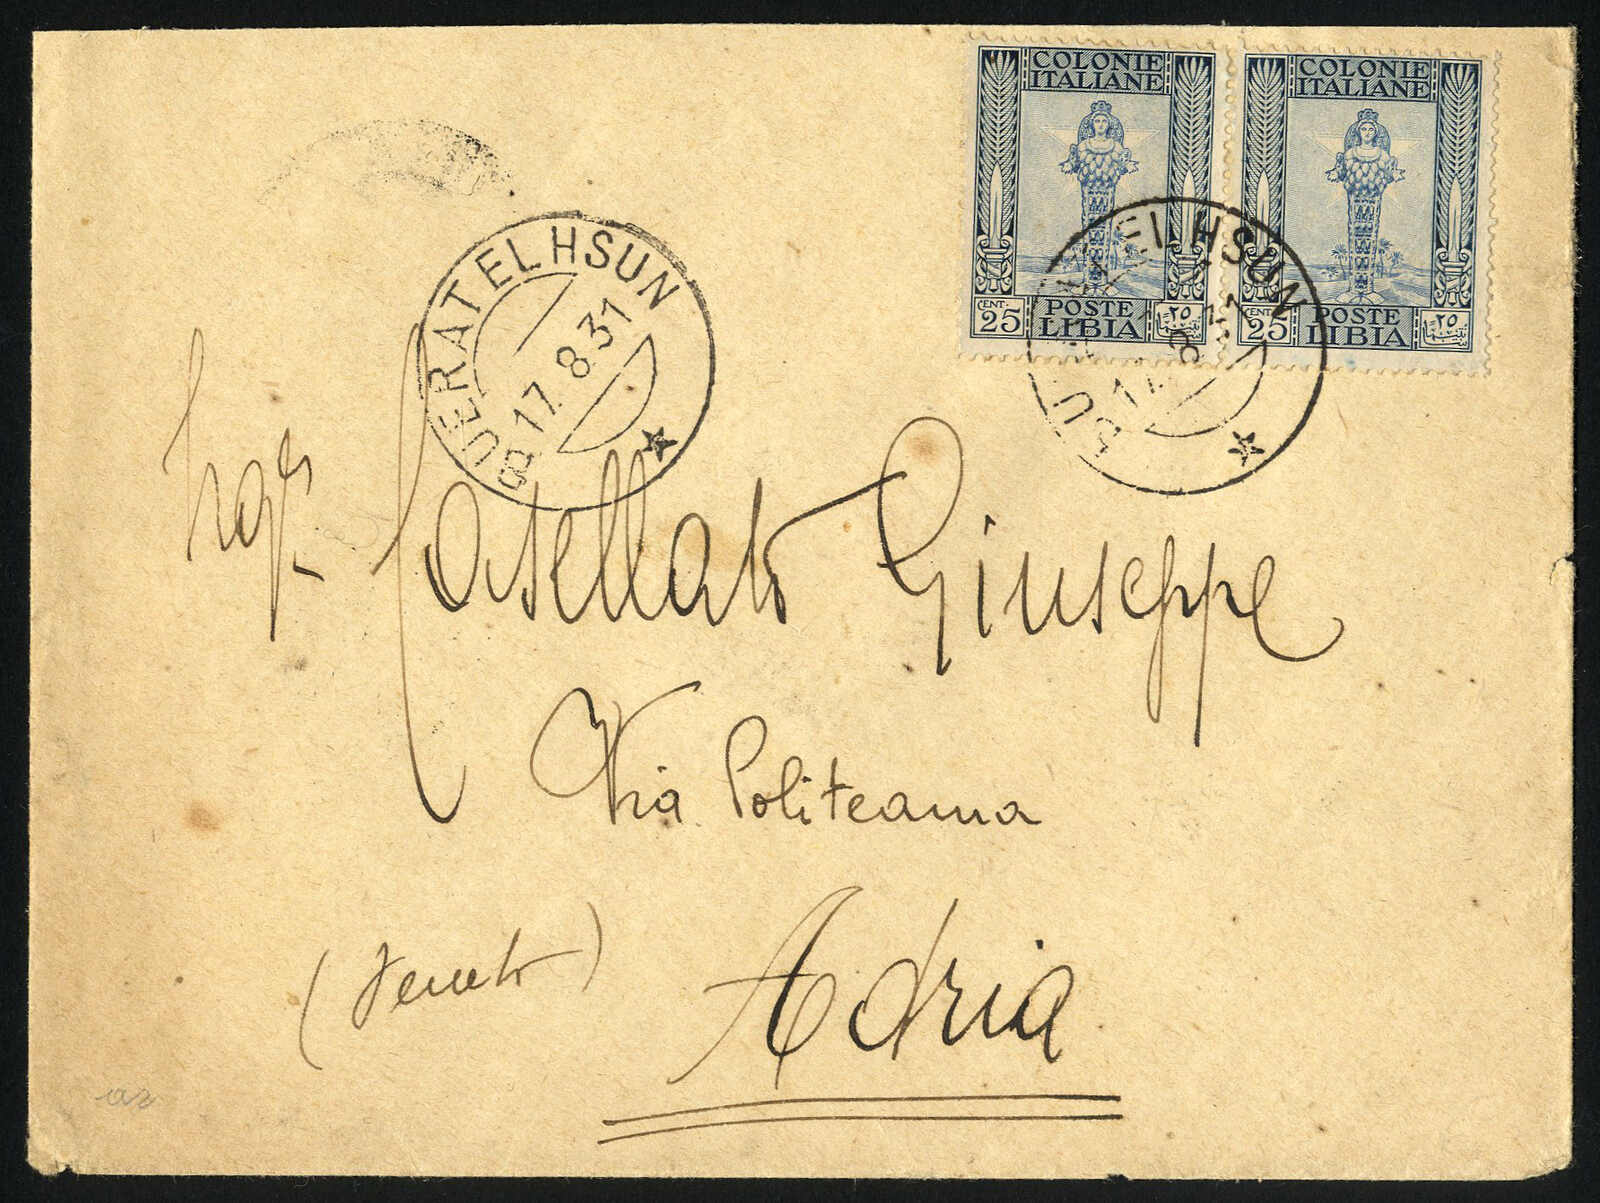 COLONIE
ITALIANE
CENT.
25
POSTE
LIBIA
٢٥
COLONIE
ITALIANE
CENT.
25
POSTE
LIBIA
٢٥
BUERAT EL HSUN
17.8.31
EL HSUN
Casellato Giuseppe
Via Politeama
(Veneto)
Adria